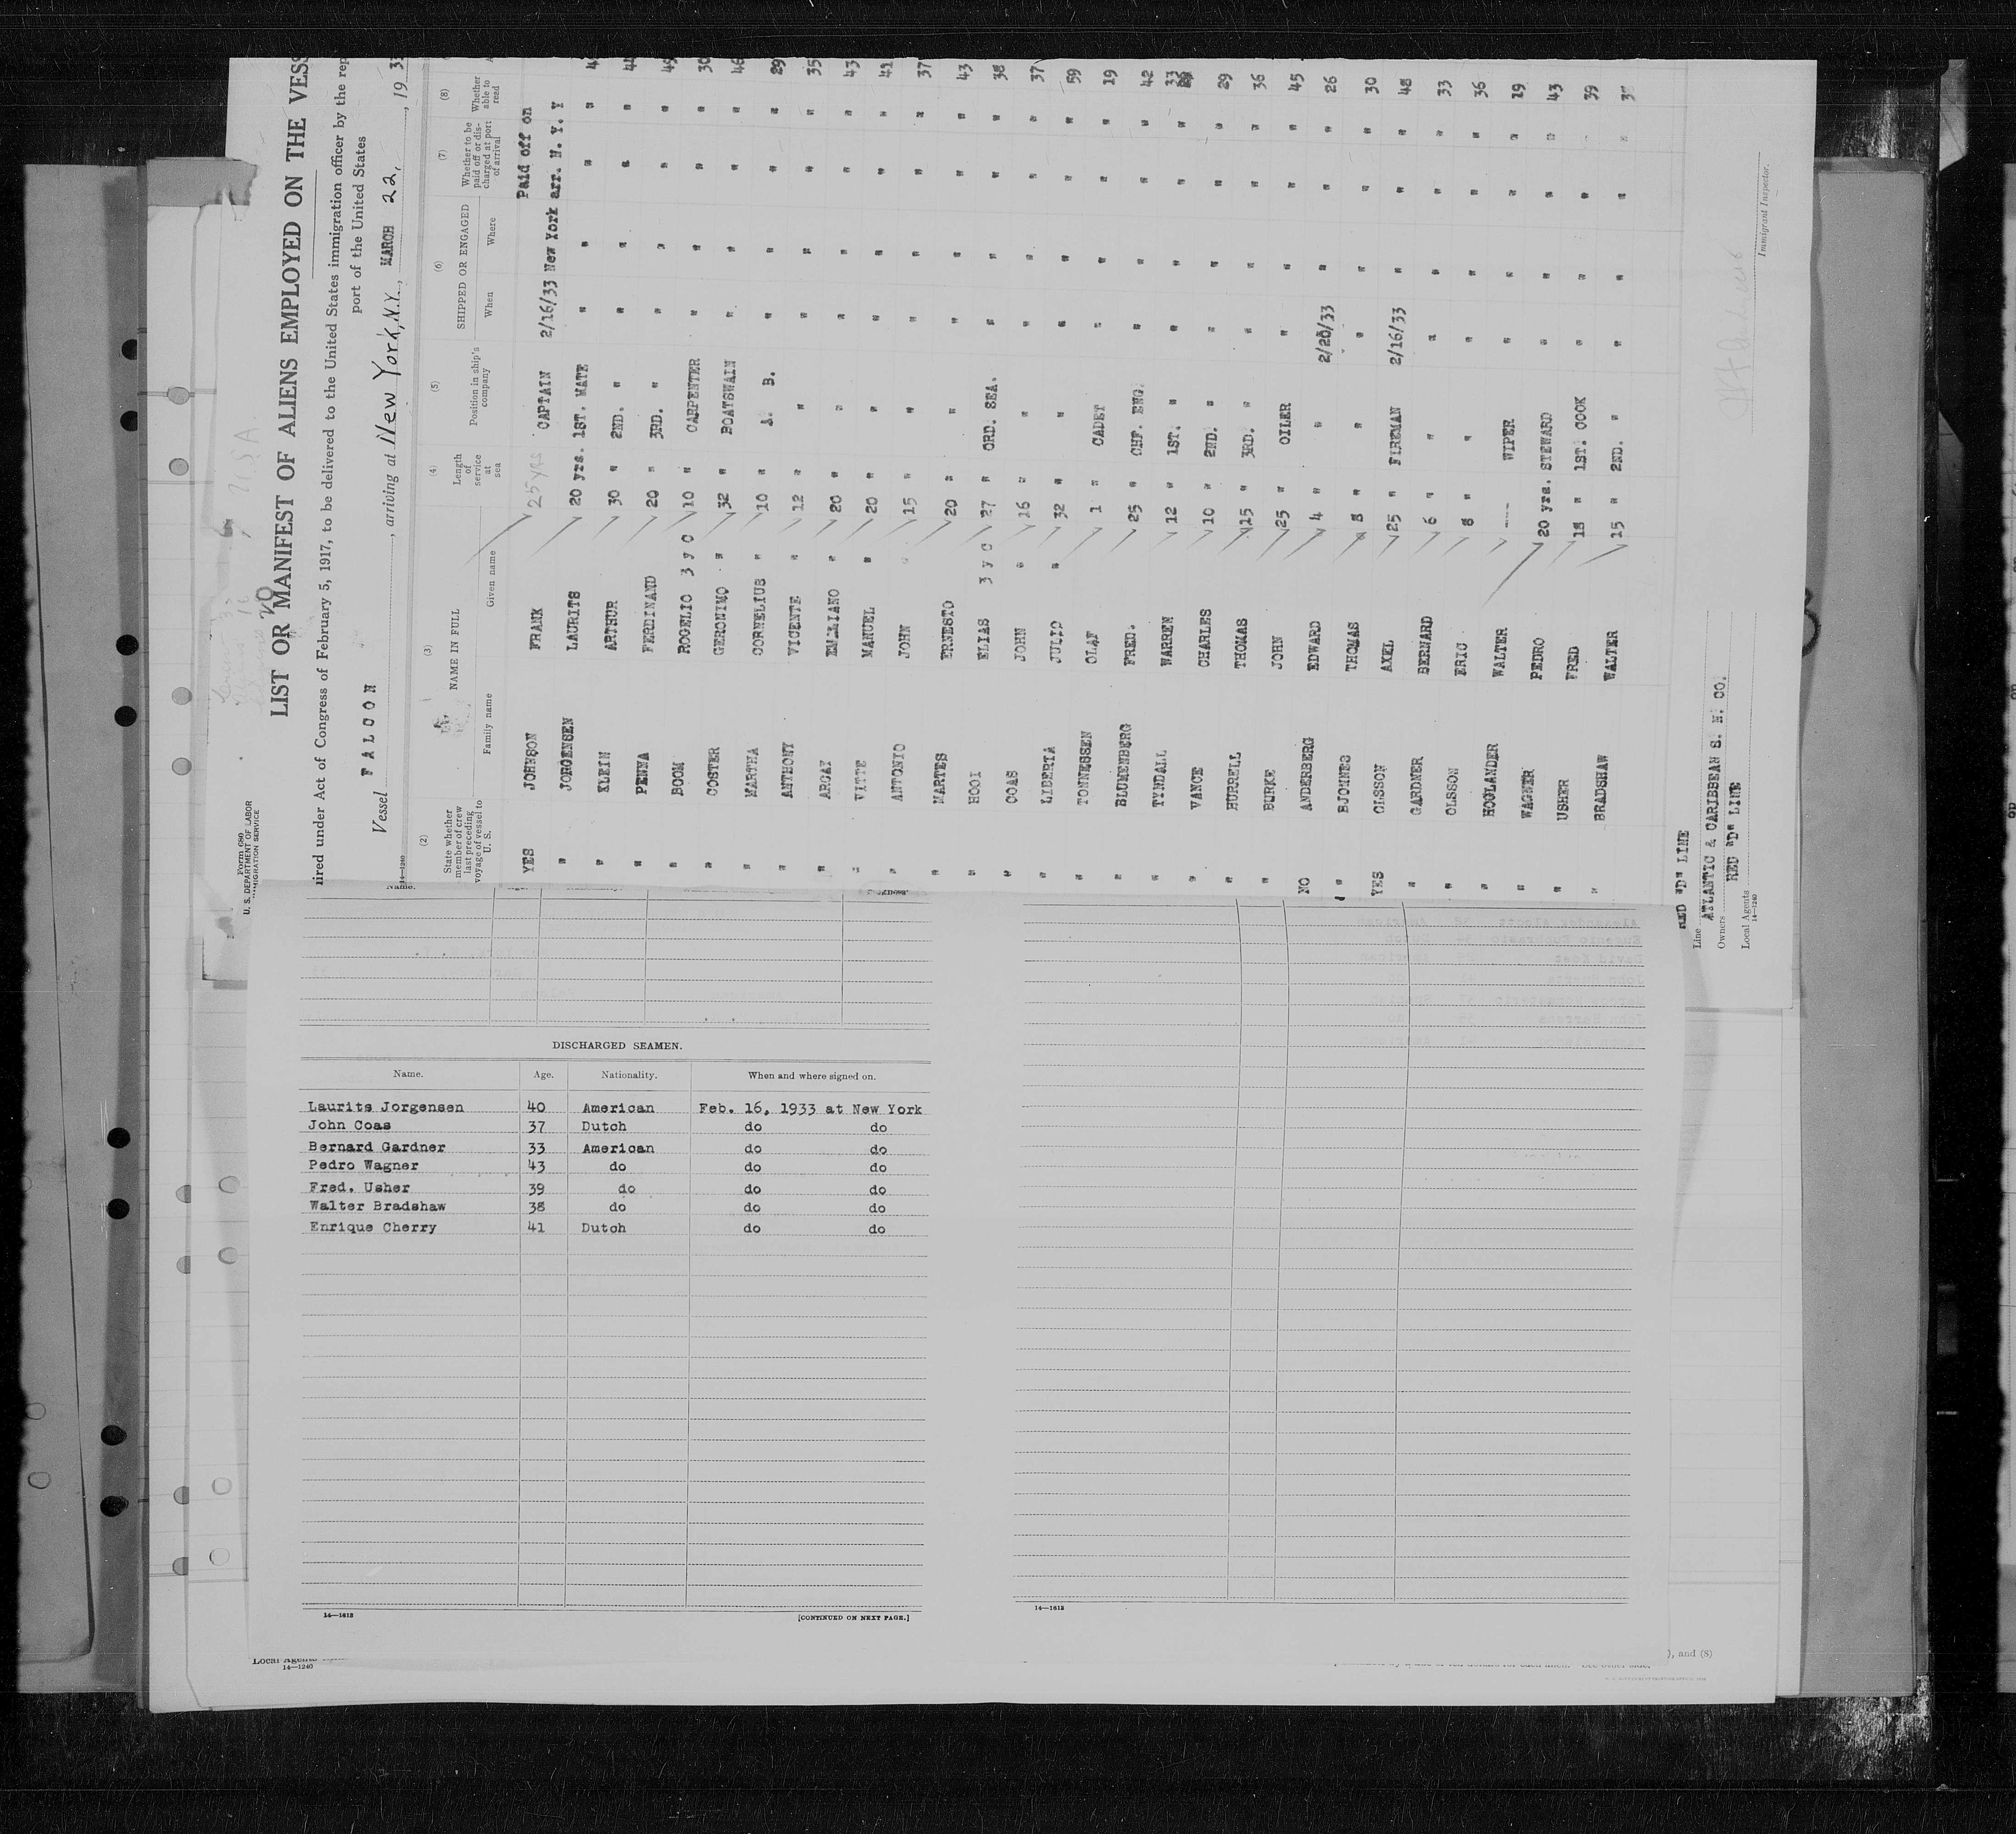 Form 680
U. S. DEPARTMENT OF LABOR
IMMIGRATION SERVICE
LIST OR MANIFEST OF ALIENS EMPLOYED ON THE VESS
ired under Act of Congress of February 5, 1917, to be delivered to the United States immigration officer by the rep
port of the United States
Vessel FALCON, arriving at New York, N.Y., MARCH 22, 19 33
14—1240
(2) (3) (4) (5) (6) (7) (8)
State whether member of crew last preceding voyage of vessel to U. S.
NAME IN FULL
Family name Given name
Length of service at sea
Position in ship's company
SHIPPED OR ENGAGED
When Where
Whether to be paid off or discharged at port of arrival
Whether able to read
Paid off on
YES JOHNSON FRANK 25 yrs CAPTAIN 2/16/33 New York arr. N. Y. Y
" JORGENSEN LAURITS 20 yrs. 1ST. MATE " " " "
" KLEIN ARTHUR 30 " 2ND. " " " " " 44
" PENNA FERDINAND 20 " 3RD. " " " " "
" BOOM ROGELIO 3 y O 10 " CARPENTER " " " " 30
" COSTER GERONIMO " 32 " BOATSWAIN " " " " 46
" MARTHA CORNELIUS " 10 " A. B. " " " " 29
" ANTHONY VICENTE " 12 " " " " " " 35
" ARCAY EMILIANO " 20 " " " " " " 43
" VITTE MANUEL " 20 " " " " " " 41
" ANTONIO JOHN " 15 " " " " " " 37
" MARTES ERNESTO 20 " " " " " " 43
" HOOI ELIAS 3 y O 27 " ORD. SEA. " " " " 38
" COAS JOHN " 16 " " " " " " 37
" LIBERTA JULIO " 32 " " " " " " 59
" TONNESSEN OLAF 1 " CADET " " " " 19
" BLUMENBERG FRED. 25 " CHF. ENG. " " " " 42
" TYNDALL WARREN 12 " 1ST. " " " " " 33
" VANCE CHARLES 10 " 2ND. " " " " " 29
" HURRELL THOMAS 15 " 3RD. " " " " " 36
" BURKE JOHN 25 " OILER " " " " 45
NO ANDERBERG EDWARD 4 " " 2/20/33 " " " 26
" BJONINES THOMAS 8 " " " " " " 30
YES OLSSON AXEL 25 " FIREMAN 2/16/33 " " " 48
" GARDNER BERNARD 6 " " " " " " 33
" OLSSON ERIC 8 " " " " " " 36
" HOGLANDER WALTER ---- WIPER " " " " 19
" WAGNER PEDRO 20 yrs. STEWARD " " " " 43
" USHER FRED 18 " 1ST. COOK " " " 39
" BRADSHAW WALTER 15 " 2ND. " " " " "
Line RED "D" LINE
Owners ATLANTIC & CARIBBEAN S. N. CO.
Local Agents RED "D" LINE
14—1240
Immigrant Inspector.
Name.
DISCHARGED SEAMEN.
Name. Age. Nationality. When and where signed on.
Laurits Jorgensen 40 American Feb. 16, 1933 at New York
John Coas 37 Dutch do do
Bernard Gardner 33 American do do
Pedro Wagner 43 do do do
Fred. Usher 39 do do do
Walter Bradshaw 38 do do do
Enrique Cherry 41 Dutch do do
14—1613 [CONTINUED ON NEXT PAGE.]
14—1613
Local Agents
14—1240
), and (8)